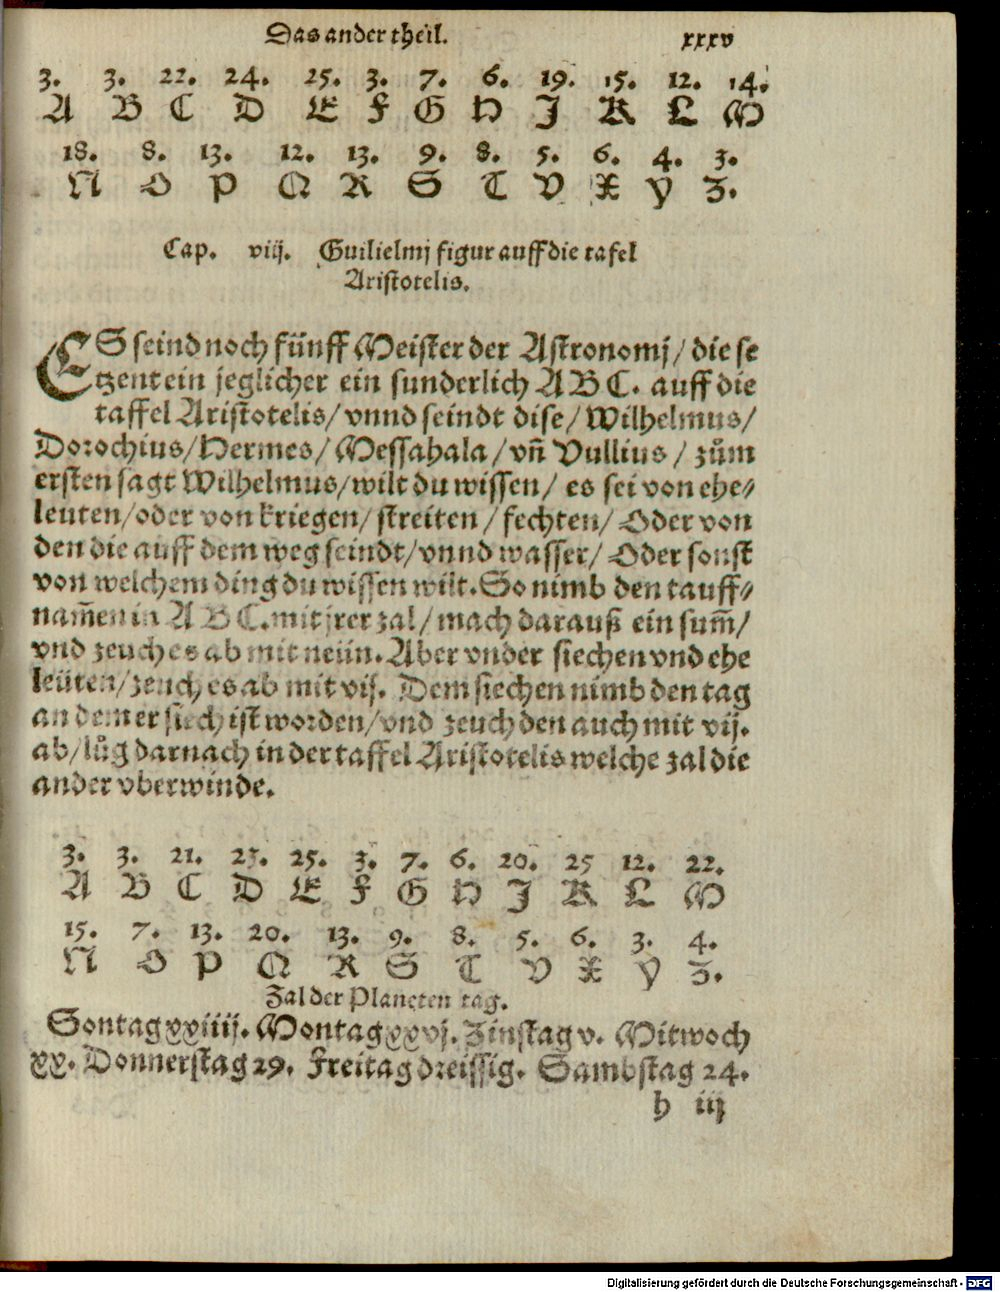 Das ander theil. xxxv
3. 3. 22. 24. 25. 3. 7. 6. 19. 15. 12. 14.
A B C D E F G H J K L M
18. 8. 13. 12. 13. 9. 8. 5. 6. 4. 3.
N O P Q R S T V X Y Z.
Cap. viij. Guilielmj figur auff die tafel
Aristotelis.
ES seind noch fünff Meister der Astronomj/ die se
tzent ein jeglicher ein sunderlich A B C. auff die
taffel Aristotelis/ vnnd seindt dise/ Wilhelmus/
Dorochius/ Hermes/ Messahala/ vñ Vullius/ zům
ersten sagt Wilhelmus/ wilt du wissen/ es sei von ehe⸗
leuten/ oder von kriegen/ streiten/ fechten/ Oder von
den die auff dem weg seindt/ vnnd wasser/ Oder sonst
von welchem ding du wissen wilt. So nimb den tauff⸗
nam̃en in A B C. mit jrer zal/ mach darauß ein sum̃/
vnd zeuch es ab mit neün. Aber vnder siechen vnd ehe
leüten/ zeuch es ab mit vij. Dem siechen nimb den tag
an dem er siech ist worden/ vnd zeuch den auch mit vij.
ab/ lůg darnach in der taffel Aristotelis welche zal die
ander vberwinde.
3. 3. 21. 23. 25. 3. 7. 6. 20. 25 12. 22.
A B C D E F G H J K L M
15. 7. 13. 20. 13. 9. 8. 5. 6. 3. 4.
N O P Q R S T V X Y Z.
Zal der Planeten tag.
Sontag xxiiij. Montag xxvj. Zinstag v. Mitwoch
xx. Donnerstag 29. Freitag dreissig. Sambstag 24.
h iij
Digitalisierung gefördert durch die Deutsche Forschungsgemeinschaft - DFG